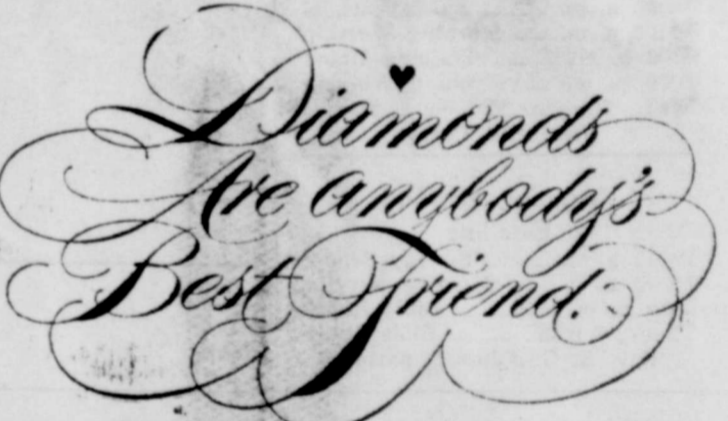 Diamonds
Are Anybody's
Best Friend.